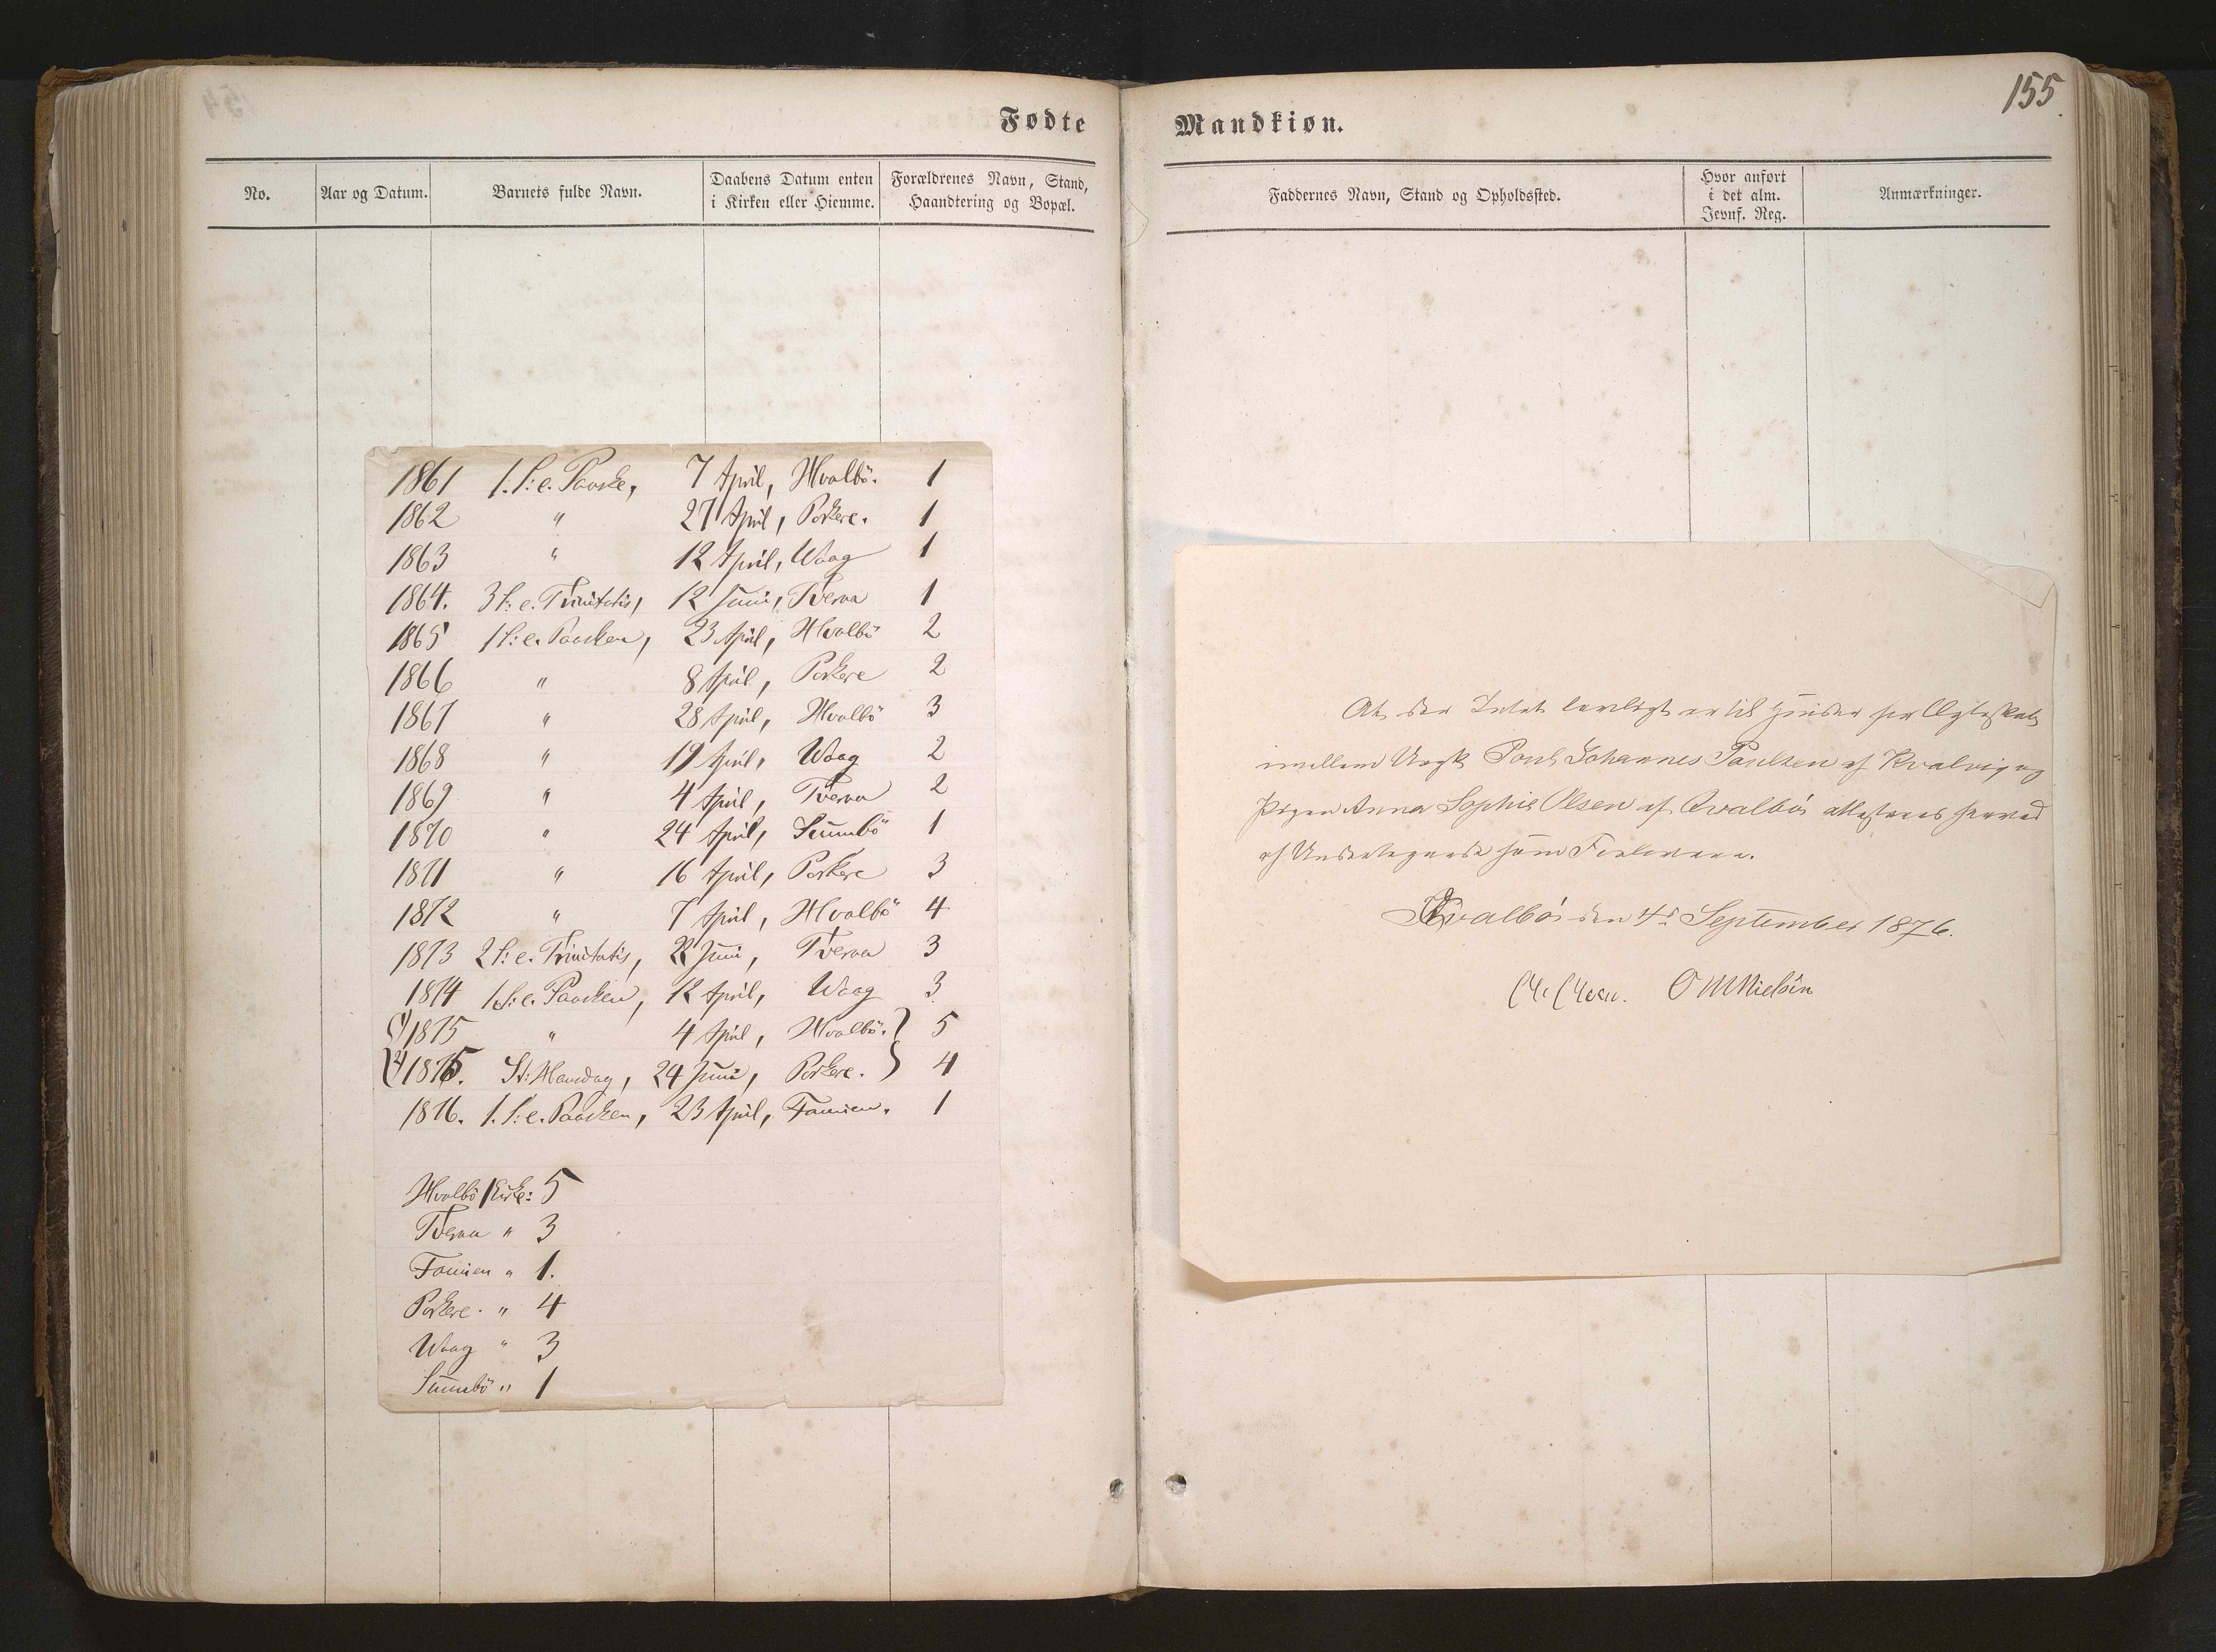 Fødte
No.
Aar og Datum.
Barnets fulde Navn.
Daabens Datum enten
i Kirken eller Hiemme.
Forældrenes Navn, Stand,
Haandtering og Bopæl.
1861 1. S: e. Paaske, 7 April, Hvalbö. 1
1862 " 27 April, Porkere. 1
1863 " 12 April, Waag 1
1864. 3 S: e. Trinitatis, 12 Juni, Tveraa 1
1865 1 S: e. Paasken, 23 April, Hvalbö 2
1866 " 8 April, Porkere 2
1867 " 28 April, Hvalbö 3
1868 " 19 April, Waag 2
1869 " 4 April, Tveraa 2
1870 " 24 April, Sumbö 1
1871 " 16 April, Porkere 3
1872 " 7 April, Hvalbö 4
1873 2 S: e. Trinitatis, 22 Juni, Tveraa 3
1874 1 S: e. Paasken, 12 April, Waag 3
1) 1875 " 4 April, Hvalbö. 5
2) 1875. St: Hansdag, 24 Juni, Porkere. 4
1876. 1. S: e. Paasken, 23 April, Famien. 1
Hvalbö Kirke: 5
Tveraa " 3
Famien " 1.
Porkere. " 4
Waag " 3
Sumbö " 1
155.
Mandkiøn.
Faddernes Navn, Stand og Opholdssted.
Hvor anført
i det alm.
Jevnf. Reg.
Anmærkninger.
At der Intet lovligt er til Hinder for Ægteskab
imellem Ungk Poul Johannes Poulsen af Kvalvig og
Pigen Anna Sophie Olsen af Qvalbø attesteres herved
af Undertegnede som Forlovere.
Qvalbø den 4d September 1876.
O M Nielsen